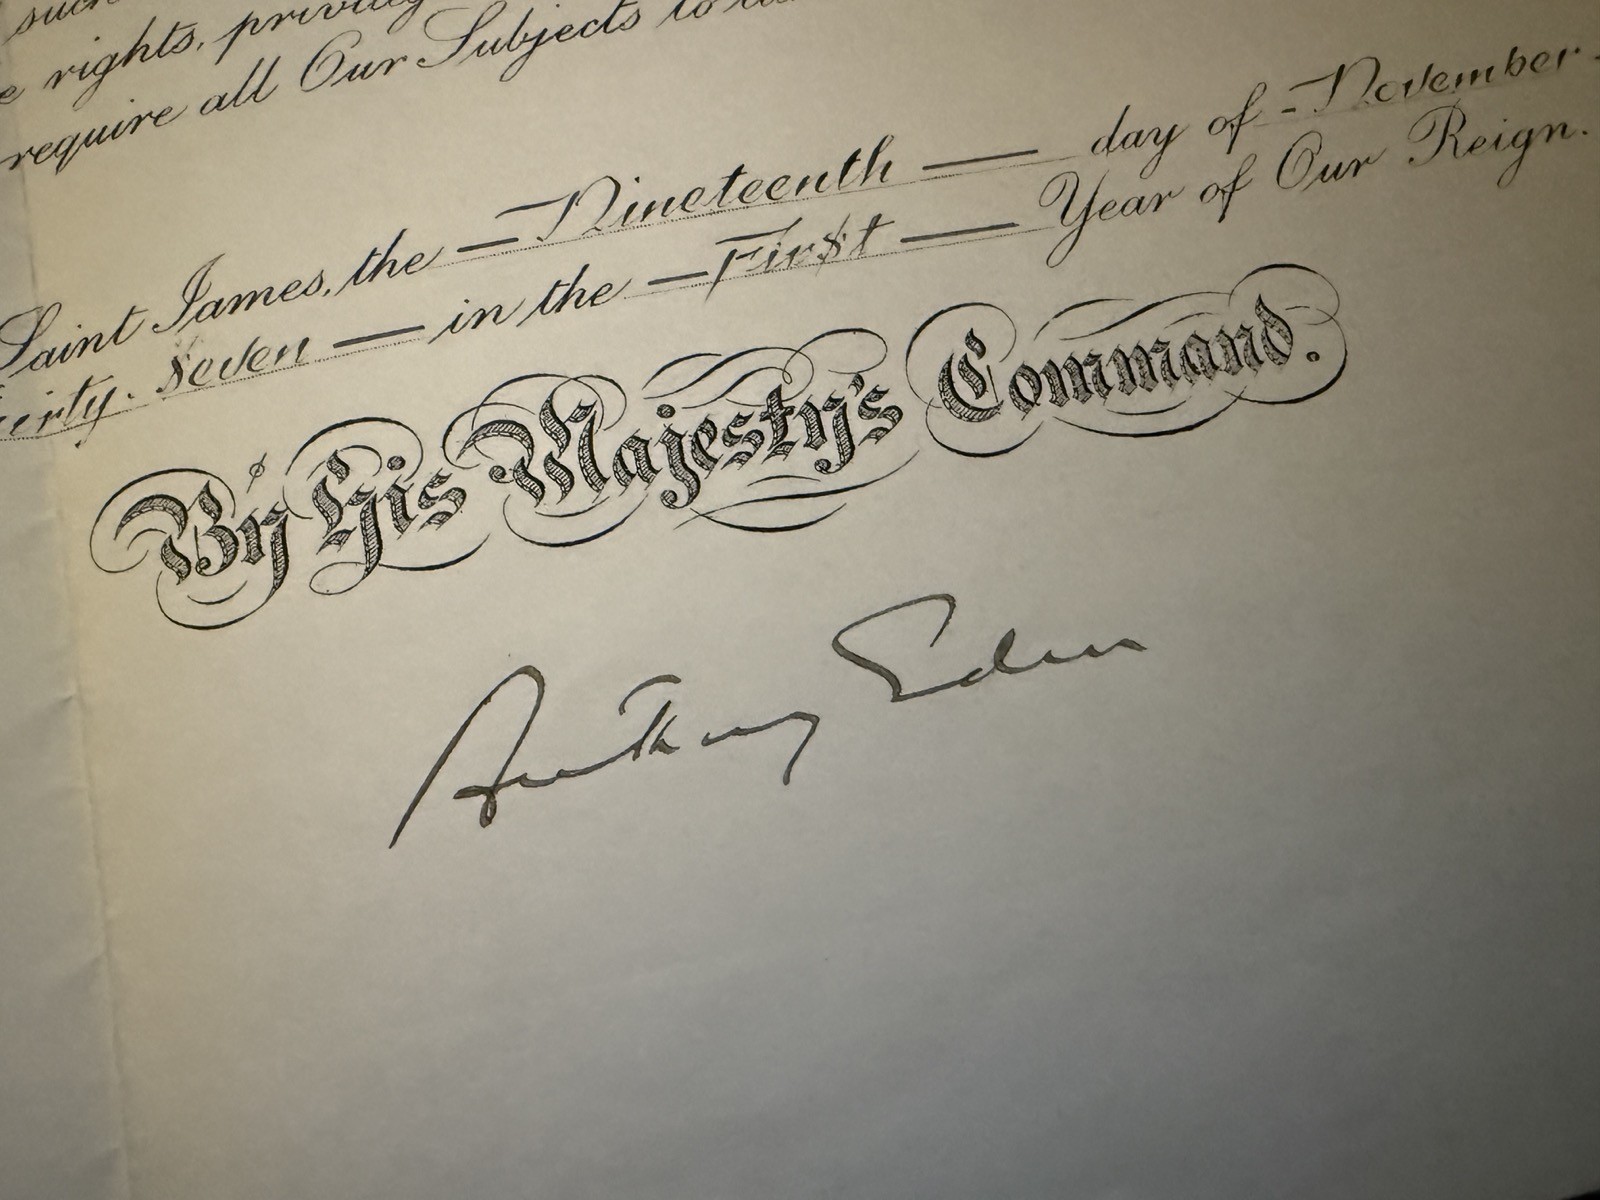 such
rights, privileg
require all Our Subjects to
Saint James, the — Nineteenth — day of - November -
Seven — in the — First — Year of Our Reign.
By His Majesty's Command.
Anthony Eden